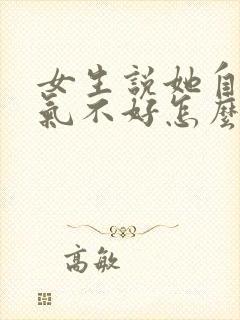 女生說她自
氣不好怎麼
高敏